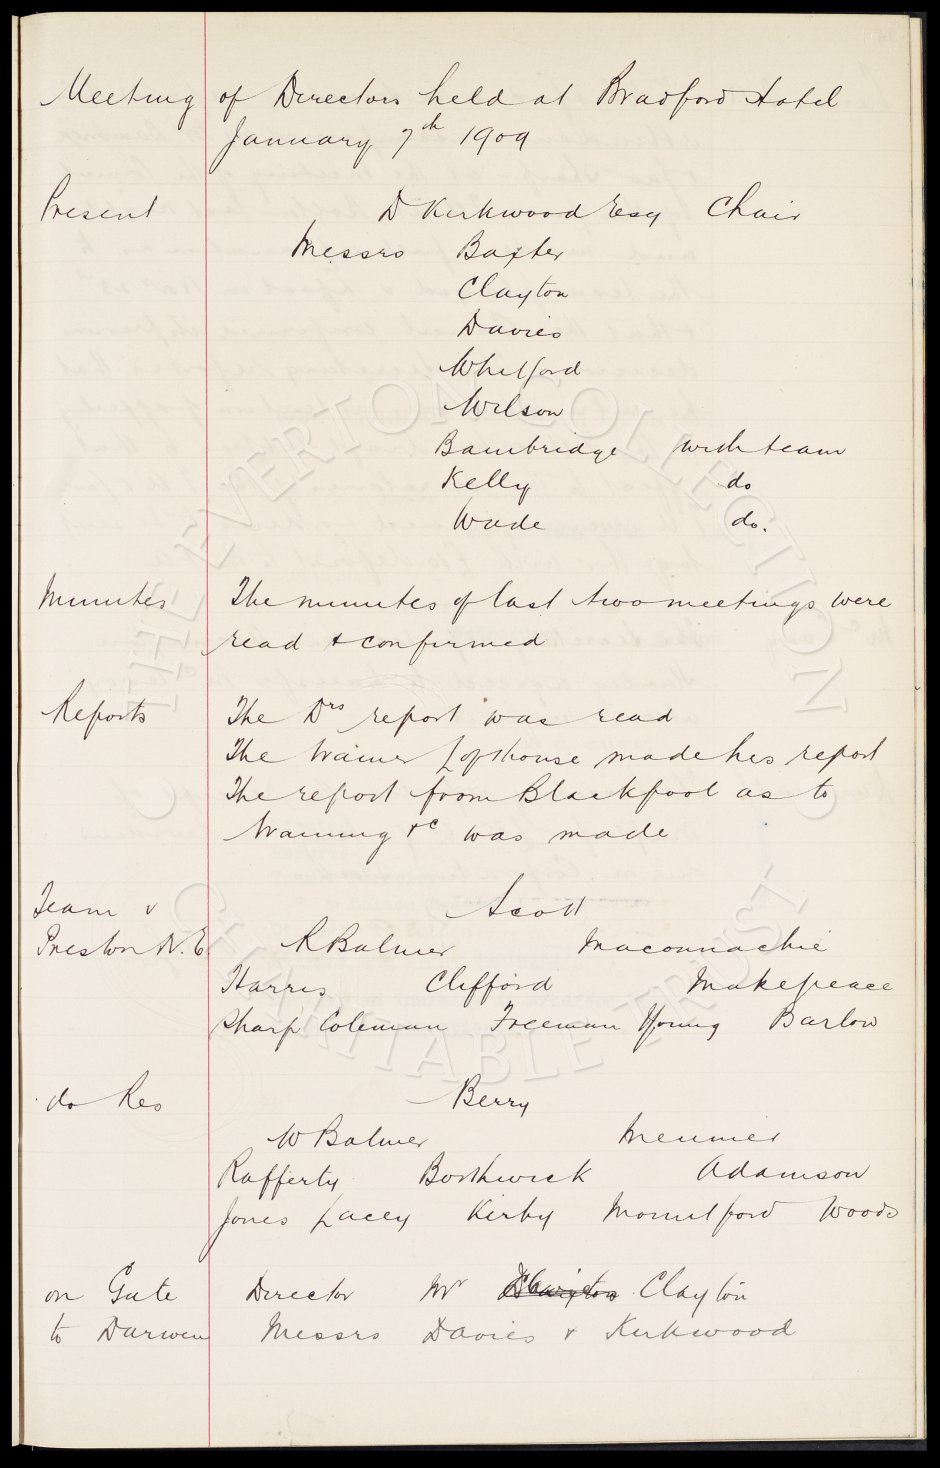 Meeting of Directors held at Bradford Hotel
January 7th 1909
Present D Kirkwood Esq Chair
Messrs Baxter
Clayton
Davies
Whitford
Wilson
Bainbridge with team
Kelly do
Wade do.
Minutes The minutes of last two meetings were
read & confirmed
Reports The Drs report was read
The trainer Lofthouse made his report
The report from Blackpool as to
training &c was made
Team v Scott
Preston N.E. R Balmer Maconnachie
Harris Clifford Makepeace
Sharp Coleman Freeman Young Barlow
do Res Berry
W Balmer Meunier
Rafferty Borthwick Adamson
Jones Lacey Kirby Mountford Woods
on Gate Director Mr Clayton
to Darwen Messrs Davies & Kirkwood
THE EVERTON COLLECTION
CHARITABLE TRUST